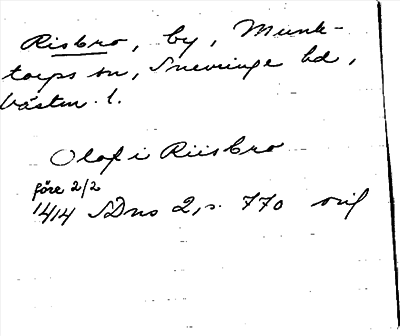 Risbro, by, Munk-
torps sn, Snevringe hd,
Västm. l.
Olof i Riisbro
före 2/2
1414 SDns 2, s. 770 orig